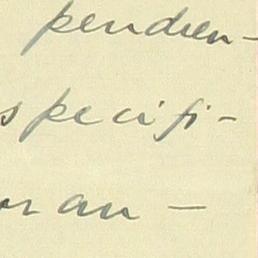 pendien-
specifi-
or an -